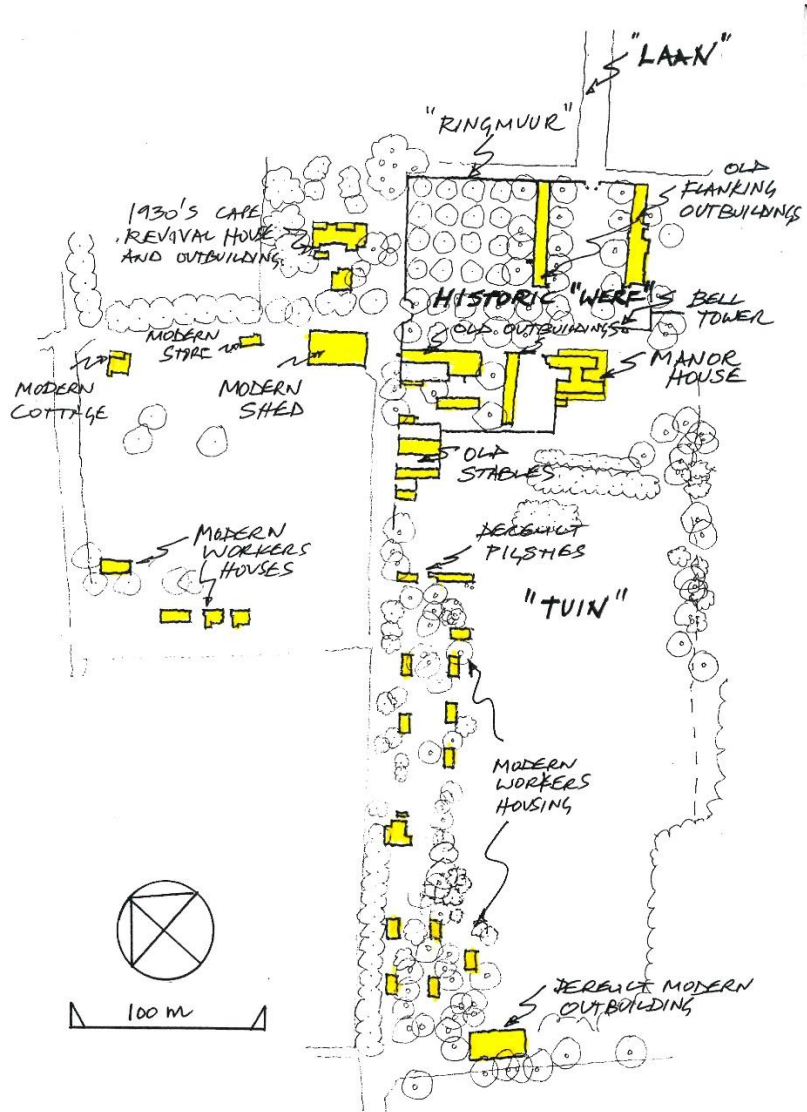 "LAAN"
"RINGMUUR"
OLD
FLANKING
OUTBUILDINGS
1930'S CAPE
REVIVAL HOUSE
AND OUTBUILDING
HISTORIC "WERF"
BELL
TOWER
OLD OUTBUILDINGS
MANOR
HOUSE
MODERN
STORE
MODERN
COTTAGE
MODERN
SHED
OLD
STABLES
MODERN
WORKERS
HOUSES
DERELICT
PIGSTIES
"TUIN"
MODERN
WORKERS
HOUSING
100 m
DERELICT MODERN
OUTBUILDING